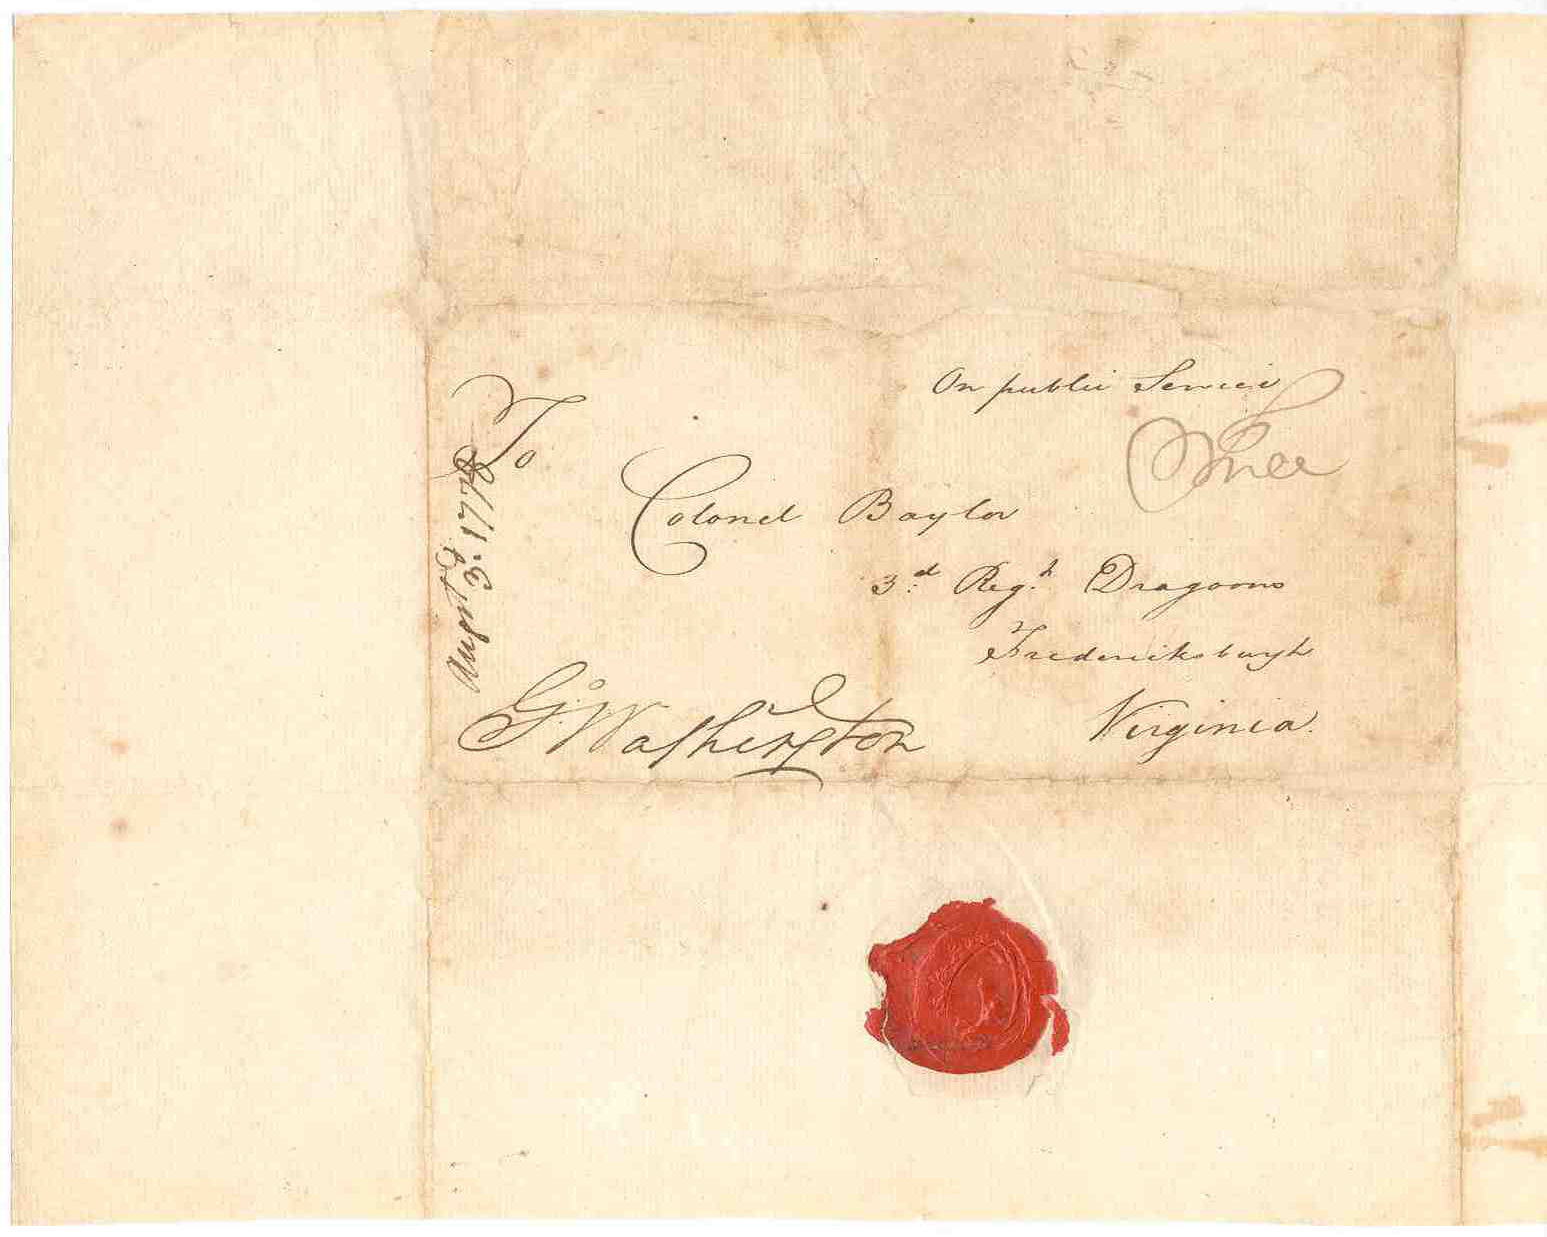 On public Service
Free
To
Colonel Baylor
3.d Reg.t Dragoons
Fredericksburgh
Virginia.
Go: Washington
August 3. 1778